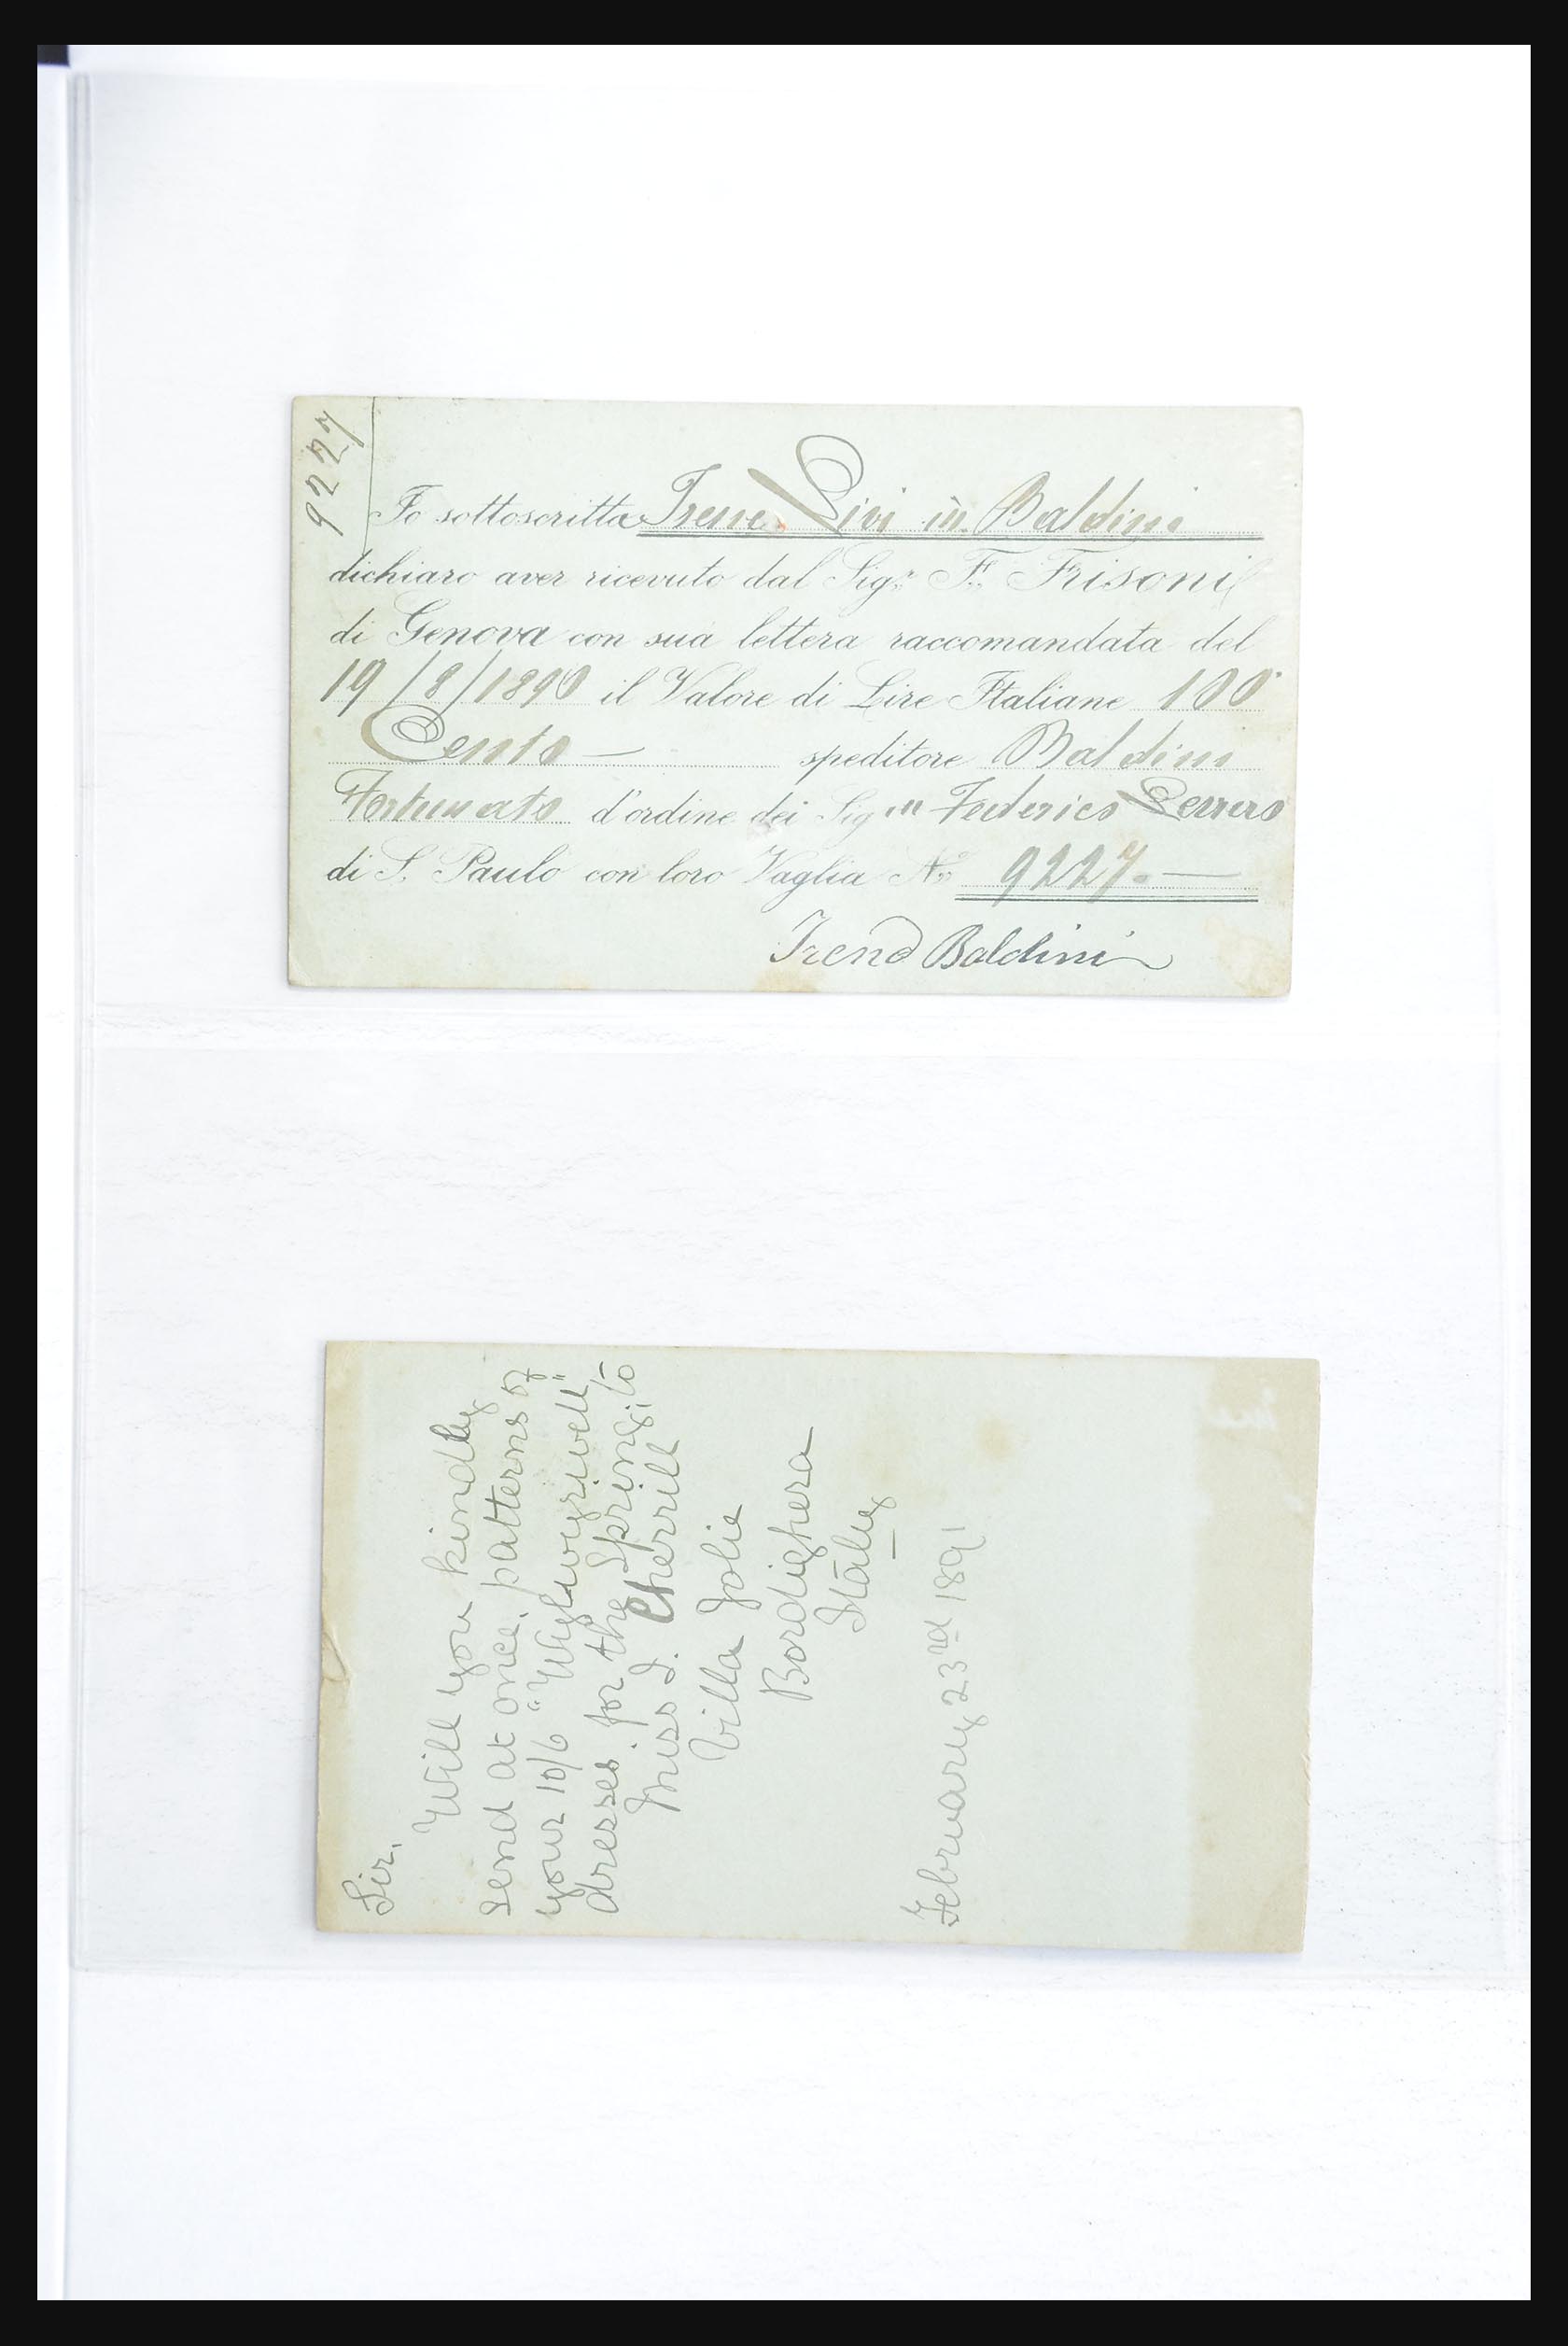 9227
Io sottoscritta Irene Livi in Baldini
dichiaro aver ricevuto dal Sigr. F. Frisoni
di Genova con sua lettera raccomandata del
19/8/1890 il Valore di Lire Italiane 100
Cento — speditore Baldini
Fortunato d'ordine dei Sig. Federico
di S. Paulo con loro Vaglia No. 9227.—
Irene Baldini
Sir.
Will you kindly
send at once, patterns of
your 10/6
dresses. for the Spring; to
Miss I. Cherrill
Villa Jolie
Bordighera
Italy
February 23rd 1891